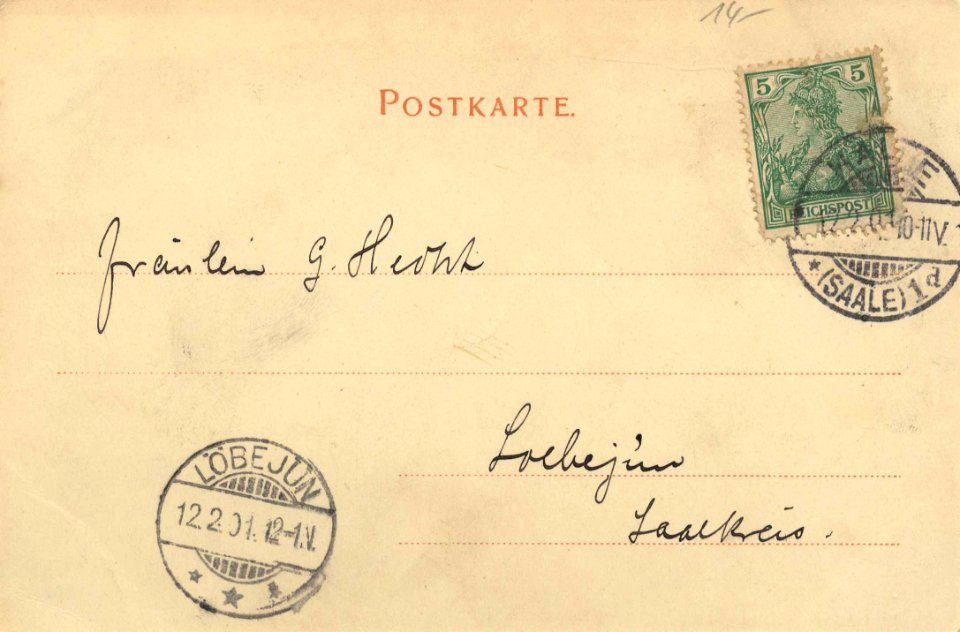 14-
POSTKARTE.
5 5
REICHSPOST
HALLE
12.2.01. 10-11V.
* (SAALE) 1d
Fräulein G. Hecht
Loebejün
Saalkreis.
LÖBEJÜN
12.2.01. 12-1.V.